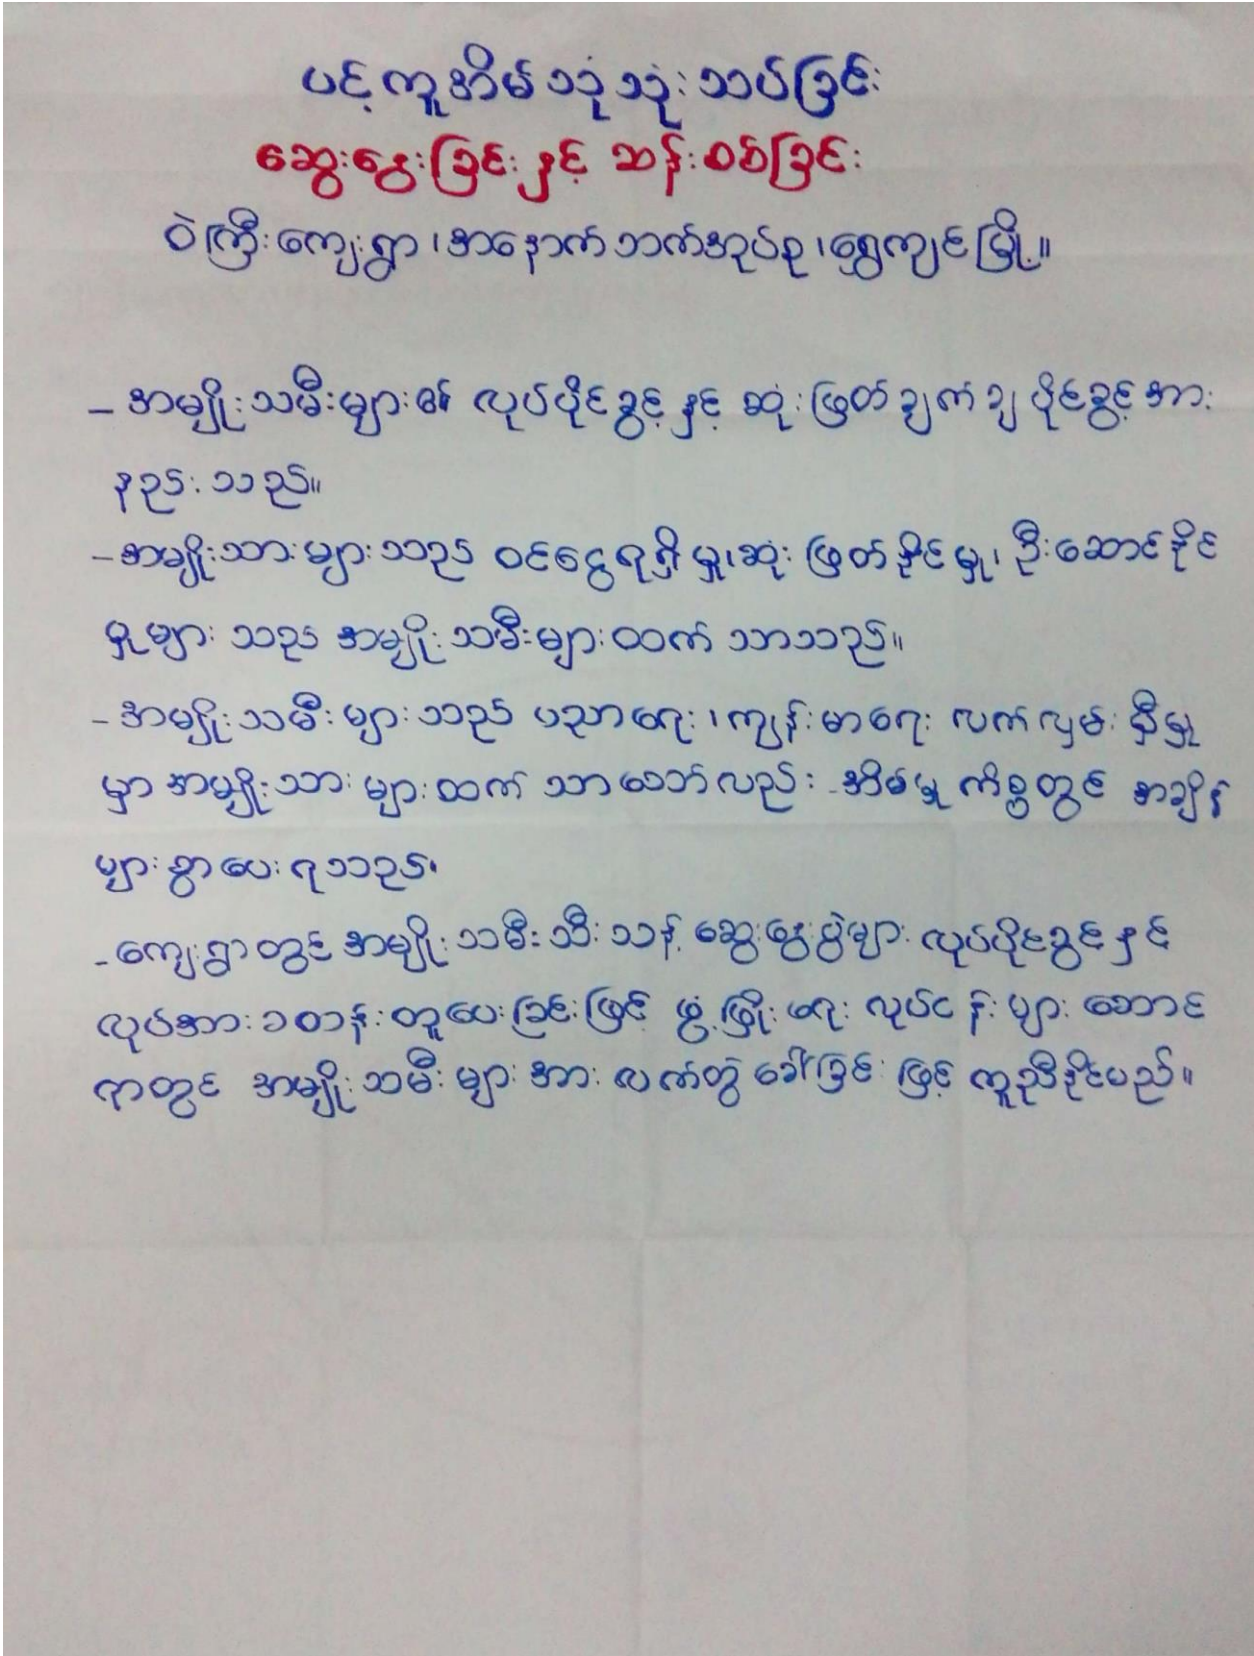 ပင့်ကူအိမ်သုံသုံးသပ်ခြင်း
ဆွေးနွေးခြင်းနှင့် ဆန်းစစ်ခြင်း
ဝဲကြီးကျေးရွာ၊အနောက်ဘက်အုပ်စု၊ရွှေကျင်မြို့။
- အမျိုးသမီးများ၏ လုပ်ပိုင်ခွင့်နှင့် ဆုံးဖြတ်ချက်ချပိုင်ခွင့်အား
နည်းသည်။
- အမျိုးသားများသည် ဝင်ငွေရရှိမှု၊ဆုံးဖြတ်နိုင်မှု၊ဦးဆောင်နိုင်
မှုများသည် အမျိုးသမီးများထက် သာသည်။
- အမျိုးသမီးများသည် ပညာရေး၊ကျန်းမာရေး လက်လှမ်းမှီမှု
မှာ အမျိုးသားများထက် သာသော်လည်း အိမ်မှုကိစ္စတွင် အချိန်
များစွာပေးရသည်။
- ကျေးရွာတွင် အမျိုးသမီးသီးသန့် ဆွေးနွေးပွဲများ လုပ်ပိုင်ခွင့်နှင့်
လုပ်အားခတန်းတူပေးခြင်းဖြင့် ဖွံ့ဖြိုးရေးလုပ်ငန်းများ ဆောင်
ရာတွင် အမျိုးသမီးများအား လက်တွဲခေါ်ခြင်းဖြင့် ကူညီနိုင်မည်။